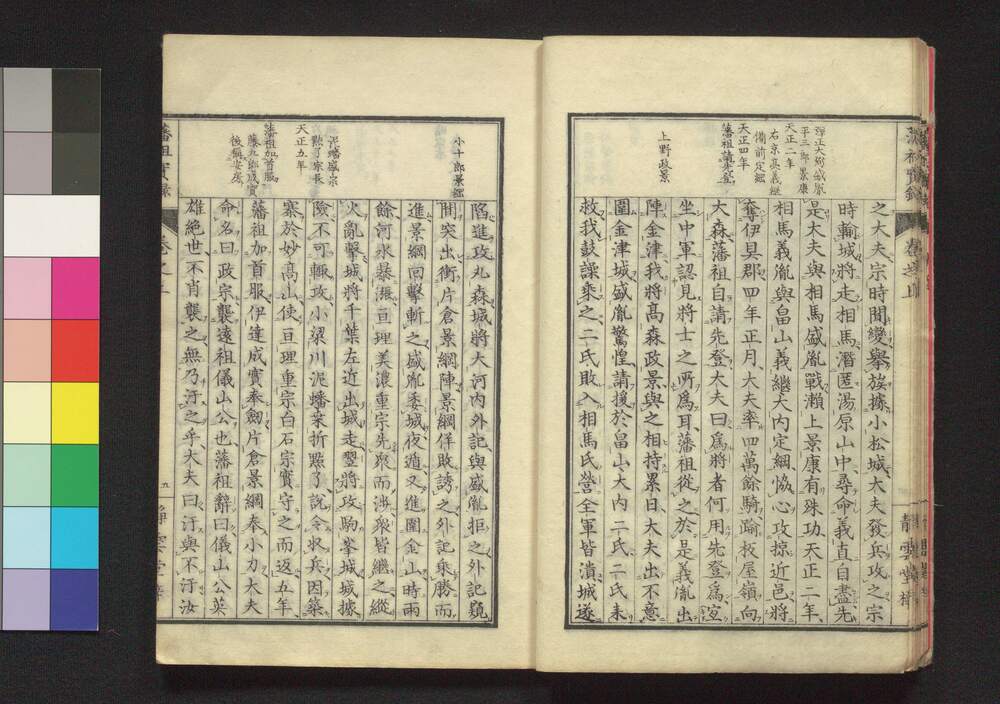 之大夫宗時聞變舉族據小松城大夫發兵攻之宗
時輸城將走相馬潛匿湯原山中尋命義直自盡先
是大夫與相馬盛胤戰瀨上景康有殊功天正二年
相馬義胤與畠山義繼大內定綱協心攻掠近邑將
奪伊具郡四年正月大夫率四萬餘騎踰枚屋嶺向
大森藩祖自請先登大夫曰爲將者何用先登爲宜
坐中軍認見將士之所爲耳藩祖從之於是義胤出
陣金津我將高森政景與之相持累日大夫出不意
圍金津城盛胤驚惶請援於畠山大內二氏二氏來
救我鼓譟乘之二氏敗入相馬氏營全軍皆潰城遂
平三郎景康
天正二年
右京亮義繼
備前定綱
天正四年
藩祖請先登
上野政景
靜雲堂梓
陷進攻丸森城將大河內外記與盛胤拒之外記窺
間突出衝片倉景綱陣景綱佯敗誘之外記乘勝而
進景綱回擊斬之盛胤委城夜遁又進圍金山時雨
餘河水暴漲亘理美濃重宗先眾而涉眾皆繼之縱
火亂擊城將千葉左近出城走翌將攻駒峯城城據
險不可輙攻小梁川泥蟠桒折點了說令收兵因築
寨於妙高山使亘理重宗白石宗實守之而返五年
藩祖加首服伊達成實奉劔片倉景綱奉小刀大夫
命名曰政宗襲遠祖儀山公也藩祖辭曰儀山公英
雄絕世不肖襲之無乃汙之乎大夫曰汙與不汙汝
小十郎景綱
泥蟠盛宗
點了宗長
天正五年
藩祖加首服
藤五郎成實
後稱安房
藩祖實錄
卷之上
五